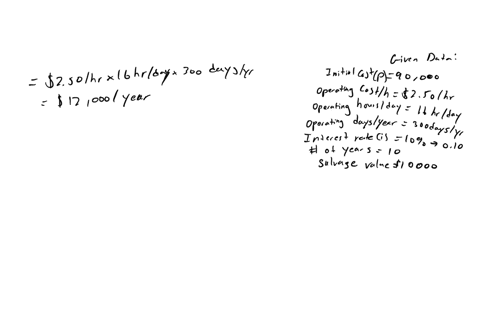 = $2.50/hr x 16 hr/day x 300 days/yr
= $12,000/year
Given Data:
Initial Cost(P)=90,000
Operating Cost/h = $2.50/hr
Operating hours/day = 16 hr/day
Operating days/year = 300days/yr
Interest rate(i) = 10% → 0.10
# of years = 10
Salvage value $10000